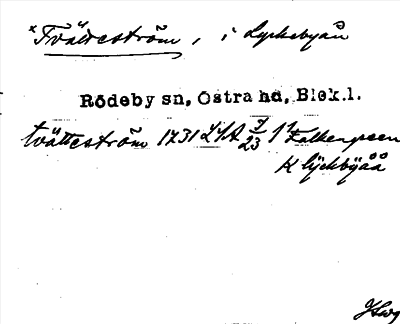 *Tvätteström, i Lyckebyån
Rödeby sn, Östra hd, Blek.l.
tvätteström 1731 LMA 7/23 11 Falkengreen
K lÿckbyåå